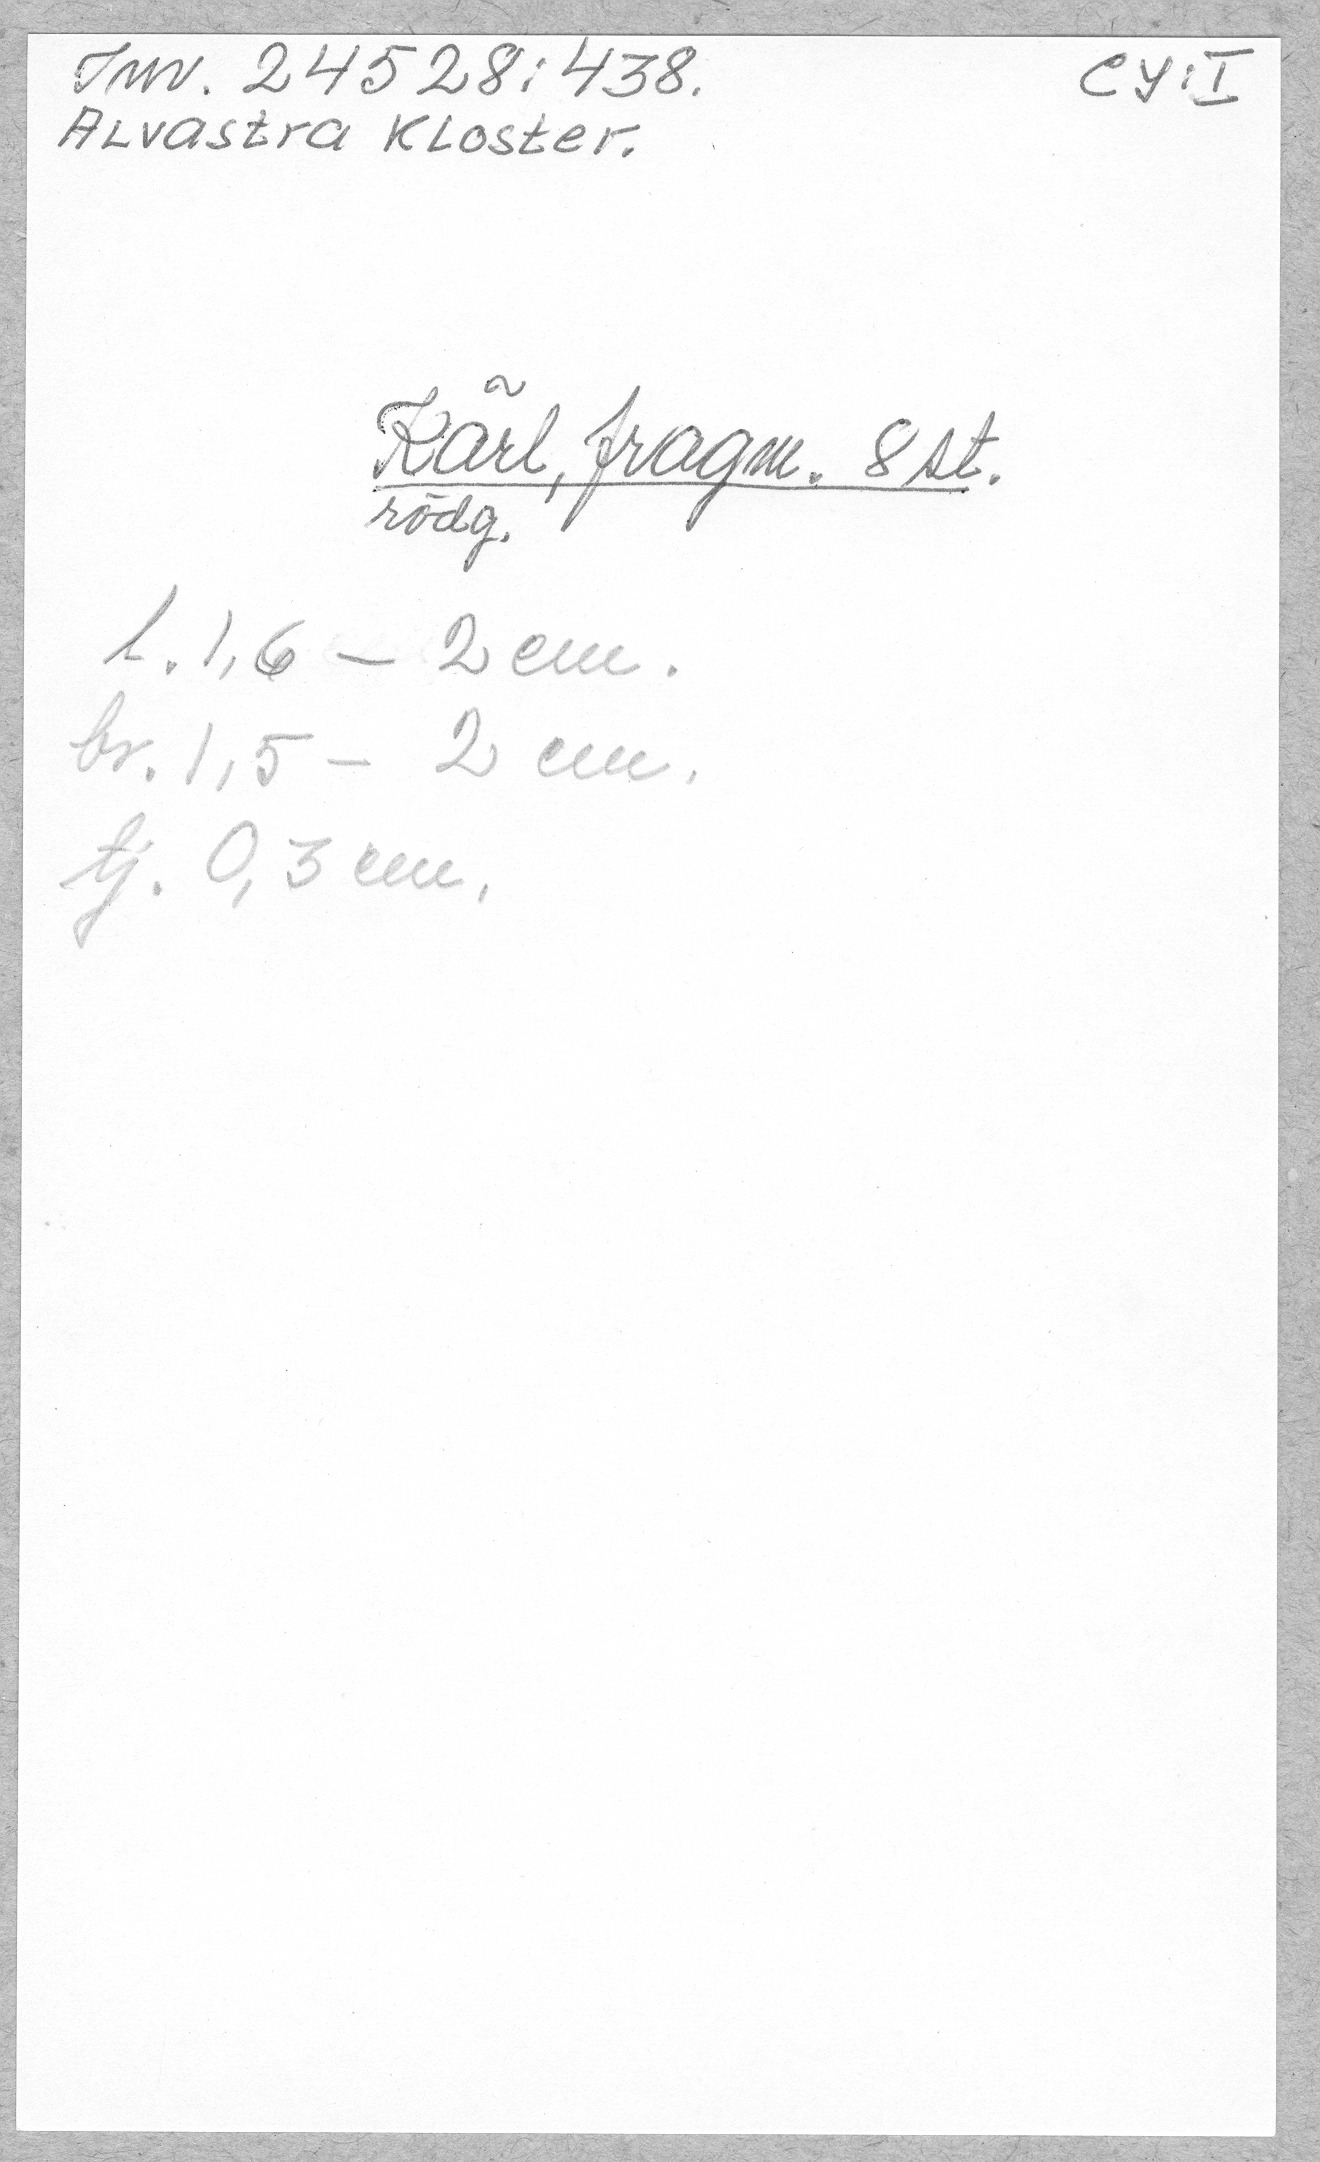 Inv. 24528:438. CY:I
Alvastra Kloster.
Kärl, fragm. 8 st.
rödg.
l. 1,6 – 2 cm.
br. 1,5 – 2 cm.
tj. 0,3 cm.